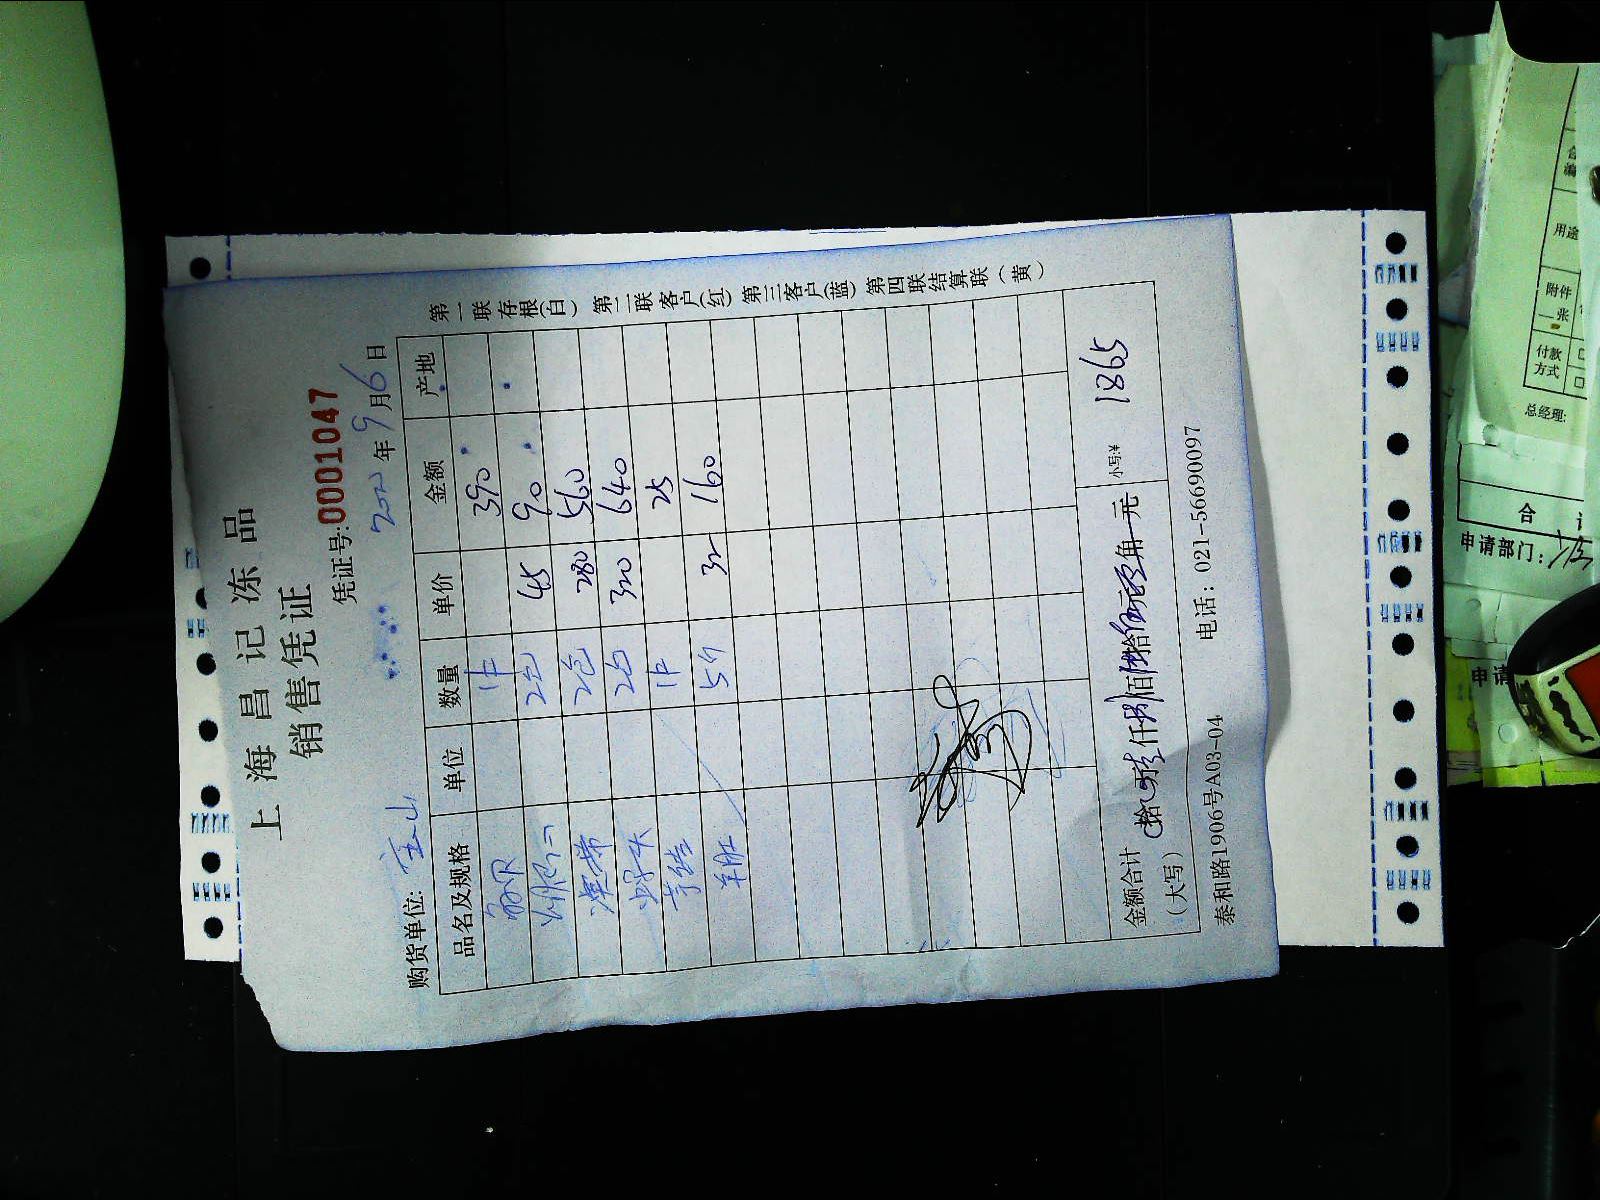 上海昌记冻品
销售凭证
凭证号:0001047
购货单位: 宝山 2020年9月6日
品名及规格 单位 数量 单价 金额 产地
1件 390
2包 45 90
海带 2包 280 560
2包 320 640
1件 25
羊肚 5斤 32 160
金额合计(大写) 拾 壹仟捌佰陆拾伍元零角 元 小写:¥ 1865
泰和路1906号A03-04 电话: 021-56690097
第一联存根(白) 第二联客户(红) 第三客户(蓝) 第四联结算联(黄)
用途
附件
一张
付款
方式
总经理:
合
申请部门:
申请